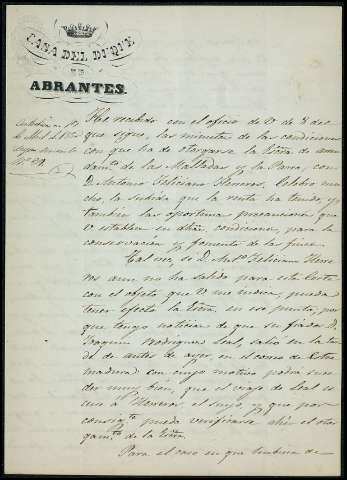 CASA DEL DUQUE
DE
ABRANTES.
He recibido con el oficio de V de 3 del
que sigue, las minutas de las condiciones
con que ha de otorgarse la Escra de arren
damto de las Malladas y la Parra, con
D. Antonio Feliciano Herreros. Celebro mu
cho, la subida que la renta ha tenido, y
tambien las oportunas precauciones que
V establece en dhas condiciones, para la
conservacion y fomento de la finca.
Tal vez, si D. Anto Feliciano Herre
ros aun no ha salido para esta Corte
con el objeto que V me indica, pueda
tener efecto la Escra en ese punto, por
que tengo noticias de que su fiador D.
Joaquin Rodriguez Leal, salió en la tar
de de antes de ayer, en el correo de Estre
madura con cuyo motivo podrá suce
der muy bien, que el viaje de Leal es
cuse á Herreros, el suyo, y que por
consigte pueda verificarse ahi el otor
gamto de la Escra
Para el caso en que hubiera de